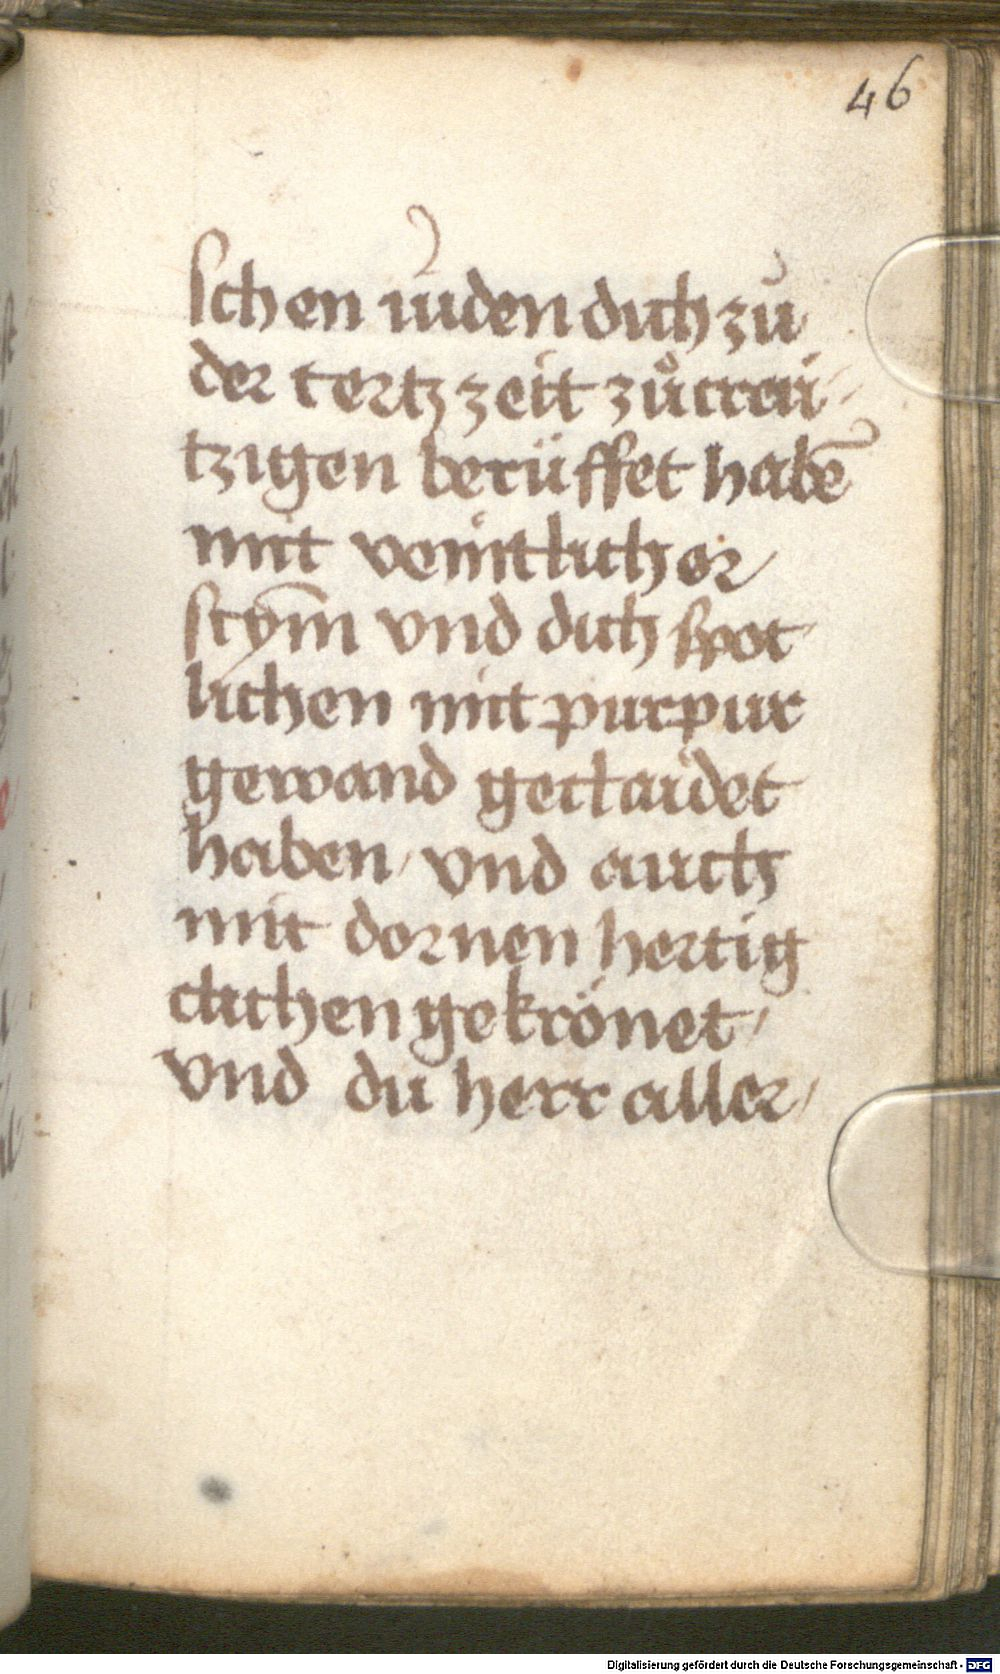 46
schen iuden dich zů
der tertz zeit zů creü-
tzigen berüffet habē
mit veintlicher
stym̄ vnd dich spot
lichen mit purpur
gewand geclaidet
haben / vnd auch
mit dornen hertig
clichen gekrönet /
vnd du herr aller /
Digitalisierung gefördert durch die Deutsche Forschungsgemeinschaft - DFG